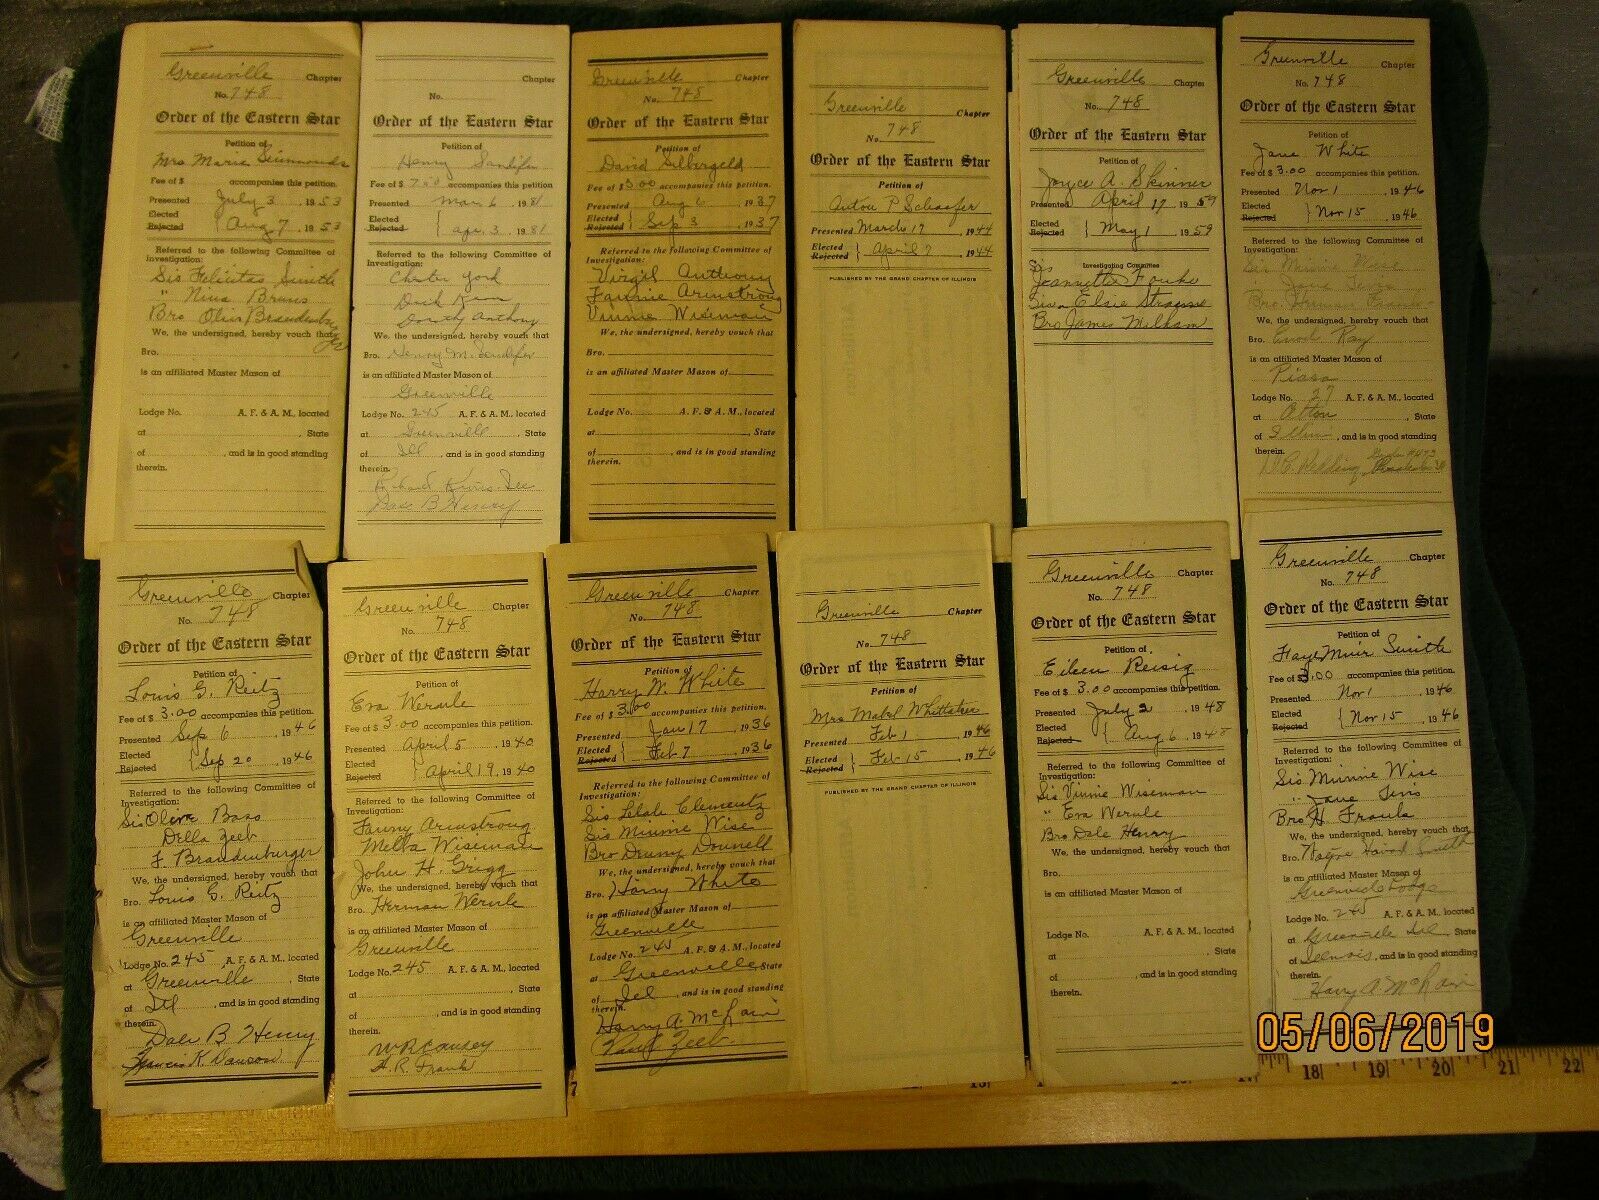 Greenville Chapter
No. 748
Order of the Eastern Star
Petition of
Mrs Marie Simmonds
Fee of $ accompanies this petition.
Presented July 3 1953
Elected
Rejected } Aug 7 1953
Referred to the following Committee of
Investigation:
Sis Felicitas Smith
" Nina Bruns
Bro Olin Brandenburger
We, the undersigned, hereby vouch that
Bro.
is an affiliated Master Mason of
Lodge No. A. F. & A. M., located
at , State
of , and is in good standing
therein.
Chapter
No.
Order of the Eastern Star
Petition of
Henry Sandifer
Fee of $ 7.50 accompanies this petition
Presented Mar 6 1981
Elected
Rejected } Apr. 3 1981
Referred to the following Committee of
Investigation:
Chester York
Dorothy Anthony
We, the undersigned, hereby vouch that
Bro. Henry M. Sandifer
is an affiliated Master Mason of
Greenville
Lodge No. 245 A. F. & A. M., located
at Greenville , State
of Ill , and is in good standing
therein.
Dale B Henry
Greenville Chapter
No. 748
Order of the Eastern Star
Petition of
David Silbergeld
Fee of $3.00 accompanies this petition.
Presented Aug 6 1937
Elected
Rejected } Sep 3 1937
Referred to the following Committee of
Investigation:
Virgil Anthony
Fannie Armstrong
Vinnie Wiseman
We, the undersigned, hereby vouch that
Bro.
is an affiliated Master Mason of
Lodge No. A. F. & A. M., located
at , State
of , and is in good standing
therein.
Greenville
Chapter
No. 748
Order of the Eastern Star
Petition of
Anton P Schaefer
Presented March 17 1944
Elected
Rejected } April 7 1944
PUBLISHED BY THE GRAND CHAPTER OF ILLINOIS
Greenville Chapter
No. 748
Order of the Eastern Star
Petition of
Joyce A. Skinner
Presented April 17 1959
Elected
Rejected } May 1 1959
Investigating Committee
Sis Jeannette Fouke
Sis Elsie Strasse
Bro James Milham
Greenville Chapter
No. 748
Order of the Eastern Star
Petition of
Jane White
Fee of $ 3.00 accompanies this petition.
Presented Nov 1 1946
Elected
Rejected } Nov 15 1946
Referred to the following Committee of
Investigation:
Sis Minnie Wise
We, the undersigned, hereby vouch that
Bro. Ray
is an affiliated Master Mason of
Piasa
Lodge No. 27 A. F. & A. M., located
at Alton , State
of Illinois , and is in good standing
therein.
Greenville Chapter
No. 748
Order of the Eastern Star
Petition of
Louis G. Reitz
Fee of $ 3.00 accompanies this petition.
Presented Sep 6 1946
Elected
Rejected } Sep 20 1946
Referred to the following Committee of
Investigation:
Sis Olive Bass
Della Zeeb
F. Brandenburger
We, the undersigned, hereby vouch that
Bro. Louis G. Reitz
is an affiliated Master Mason of
Greenville
Lodge No. 245 A. F. & A. M., located
at Greenville , State
of Ill , and is in good standing
therein.
Dale B Henry
Francis K Dawson
Greenville Chapter
No. 748
Order of the Eastern Star
Petition of
Eva Wernle
Fee of $ 3.00 accompanies this petition.
Presented April 5 1940
Elected
Rejected } April 19, 1940
Referred to the following Committee of
Investigation:
Fanny Armstrong
Melba Wiseman
John H. Grigg
We, the undersigned, hereby vouch that
Bro. Herman Wernle
is an affiliated Master Mason of
Greenville
Lodge No. 245 A. F. & A. M., located
at , State
of , and is in good standing
therein.
W R Causey
Greenville Chapter
No. 748
Order of the Eastern Star
Petition of
Harry W. White
Fee of $ 3.00 accompanies this petition.
Presented Jan 17 1936
Elected
Rejected } Feb 7 1936
Referred to the following Committee of
Investigation:
Sis Lelah Clementz
Sis Minnie Wise
Bro Denny Donnell
We, the undersigned, hereby vouch that
Bro. Harry White
is an affiliated Master Mason of
Greenville
Lodge No. 245 A. F. & A. M., located
at Greenville State
of Ill , and is in good standing
therein.
Harry A. McLain
Paul Zeeb
Greenville Chapter
No. 748
Order of the Eastern Star
Petition of
Mrs Mabel Whittaker
Presented Feb 1 1946
Elected
Rejected } Feb 15 1946
PUBLISHED BY THE GRAND CHAPTER OF ILLINOIS
Greenville Chapter
No. 748
Order of the Eastern Star
Petition of
Eileen Reisig
Fee of $ 3.00 accompanies this petition.
Presented July 2 1948
Elected
Rejected } Aug 6 1948
Referred to the following Committee of
Investigation:
Sis Vinnie Wiseman
" Eva Wernle
Bro Dale Henry
We, the undersigned, hereby vouch that
Bro.
is an affiliated Master Mason of
Lodge No. A. F. & A. M., located
at , State
of , and is in good standing
therein.
Greenville Chapter
No. 748
Order of the Eastern Star
Petition of
Faye Muir Smith
Fee of $3.00 accompanies this petition.
Presented Nov 1 1946
Elected
Rejected } Nov 15 1946
Referred to the following Committee of
Investigation:
Sis Minnie Wise
" Jane
Bro H
We, the undersigned, hereby vouch that
Bro. Wayne Smith
is an affiliated Master Mason of
Greenville Lodge
Lodge No. 245 A. F. & A. M., located
at Greenville Ill State
of Illinois, and is in good standing
therein.
Harry A. McLain
05/06/2019
18 19 20 21 22